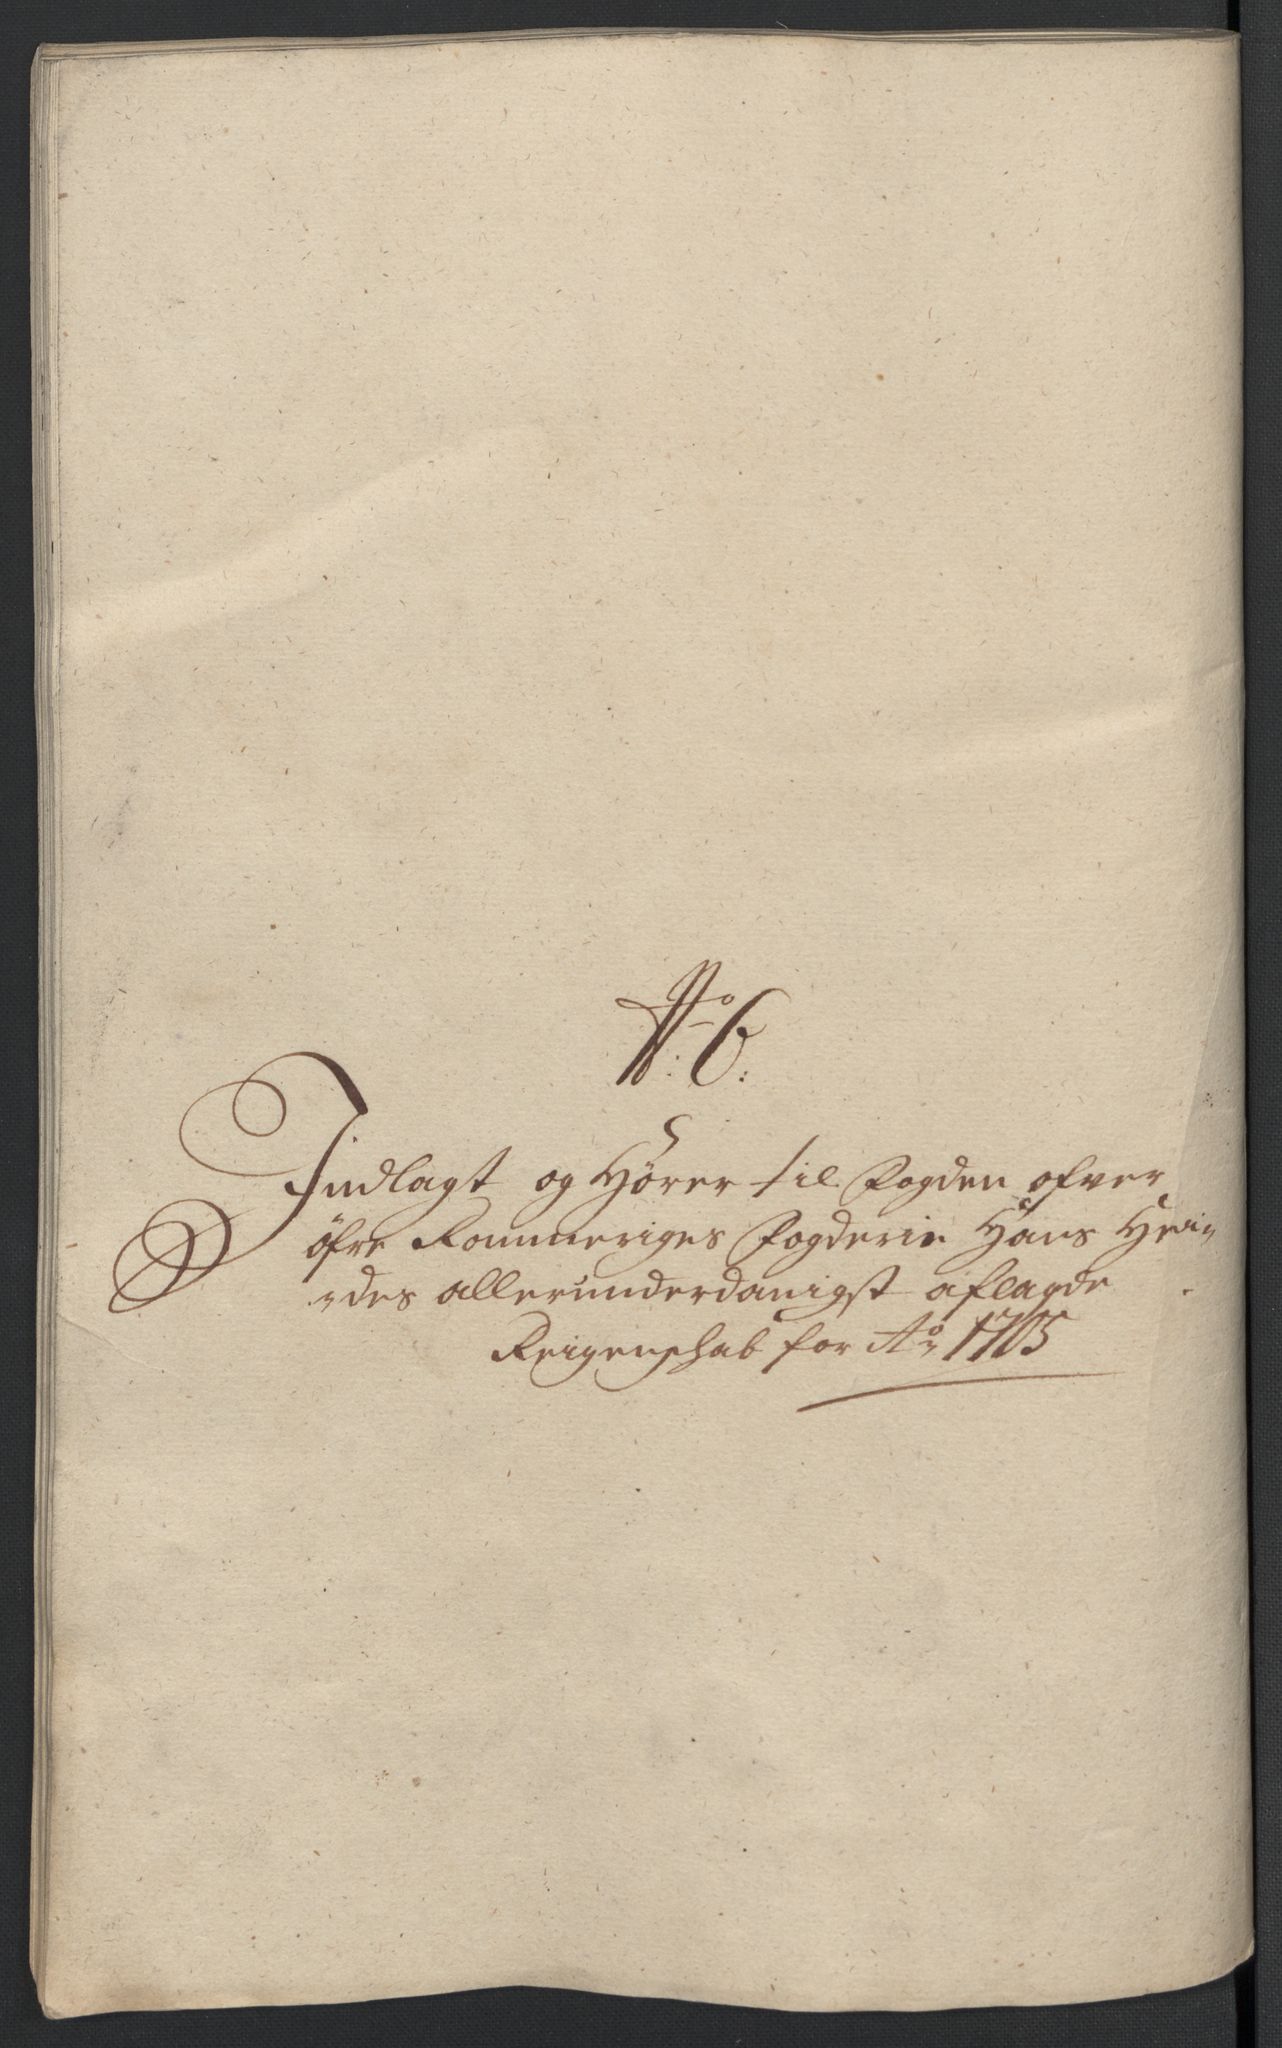 No 6:
Indlagt og Hörer til Fogden ofver
öfre Rommeriges Fogderie Hans Hei-
-des allerunderdanigst aflagde
Reigenschab for Ao 1705